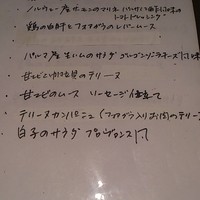 ・ノルウェー産サーモンのマリネ バルサミコ風味の
トマトドレッシング
・鶏の白肝とフォアグラのレバームース
・パルマ産生ハムのサラダ ゴルゴンゾーラチーズ
・甘エビの
のテリーヌ
・甘エビのムース ソーセージ仕立て
・テリーヌカンパーニュ(フォアグラ入りお肉のテリーヌ
・白子のサラダ プロヴァンス風